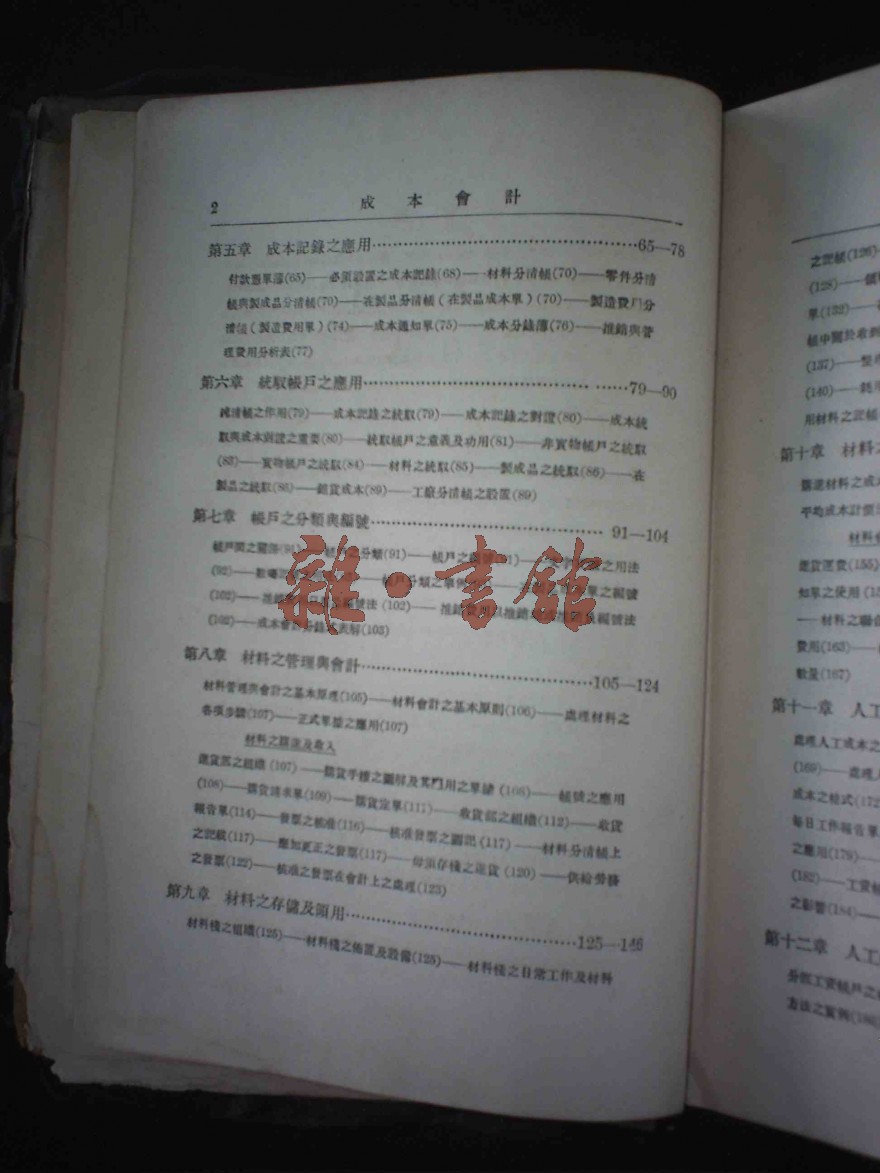 2
成本會計
第五章 成本記錄之應用……65—78
付款憑單簿(65)——必須設置之成本記錄(68)——材料分清帳(70)——零件分清
帳與製成品分清帳(70)——在製品分清帳(在製品成本單)(70)——製造費用分
清帳(製造費用單)(74)——成本通知單(75)——成本分錄簿(76)——推銷與管
理費用分析表(77)
第六章 統馭帳戶之應用……79—90
之作用(79)——成本記錄之統馭(79)——成本記錄之對證(80)——成本統
馭與成本對證之重要(80)——統馭帳戶之意義及功用(81)——非實物帳戶之統馭
(83)——實物帳戶之統馭(84)——材料之統馭(85)——製成品之統馭(86)——在
製品之統馭(86)——銷貨成本(89)——工廠分清帳之設置(89)
第七章 帳戶之分類與編號……91—104
帳戶間之關係 分類(91)——帳戶之 之用法
(92)—— 帳戶分類之舉例 單之編號
(102)—— 編號法(102)—— 推銷費用 編號法
(102)——成本會計分錄 表解(103)
第八章 材料之管理與會計……105—124
材料管理與會計之基本原理(105)——材料會計之基本原則(106)——處理材料之
各項步驟(107)——正式單據之應用(107)
材料之購進及收入
進貨部之組織(107)——購貨手續之圖解及其所用之單據(108)——帳號之應用
(108)——購貨請求單(109)——購貨定單(111)——收貨部之組織(112)——收貨
報告單(114)——發票之核准(116)——核准發票之圖記(117)——材料分清帳上
之記載(117)——應加更正之發票(117)——毋須存棧之進貨(120)——供給勞務
之發票(122)——核准之發票在會計上之處理(123)
第九章 材料之存儲及領用……125—146
材料棧之組織(125)——材料棧之佈置及設備(125)——材料棧之日常工作及材料
之記帳(126)
(128)——領
單(132)——
帳中關於收到
(137)——整理
(140)——耗
用材料之記帳
第十章 材料
購進材料之成
平均成本計價
材料
進貨運費(155)
知單之使用
——材料之聯
費用(163)——
數量(167)
第十一章 人工
處理人工成本之
(169)——處理
成本之格式(172
每日工作報告單
之應用(179)——
(182)——工資帳
之影響(184)——
第十二章 人工
分部工資帳戶之
方法之實例(186
雜·書館